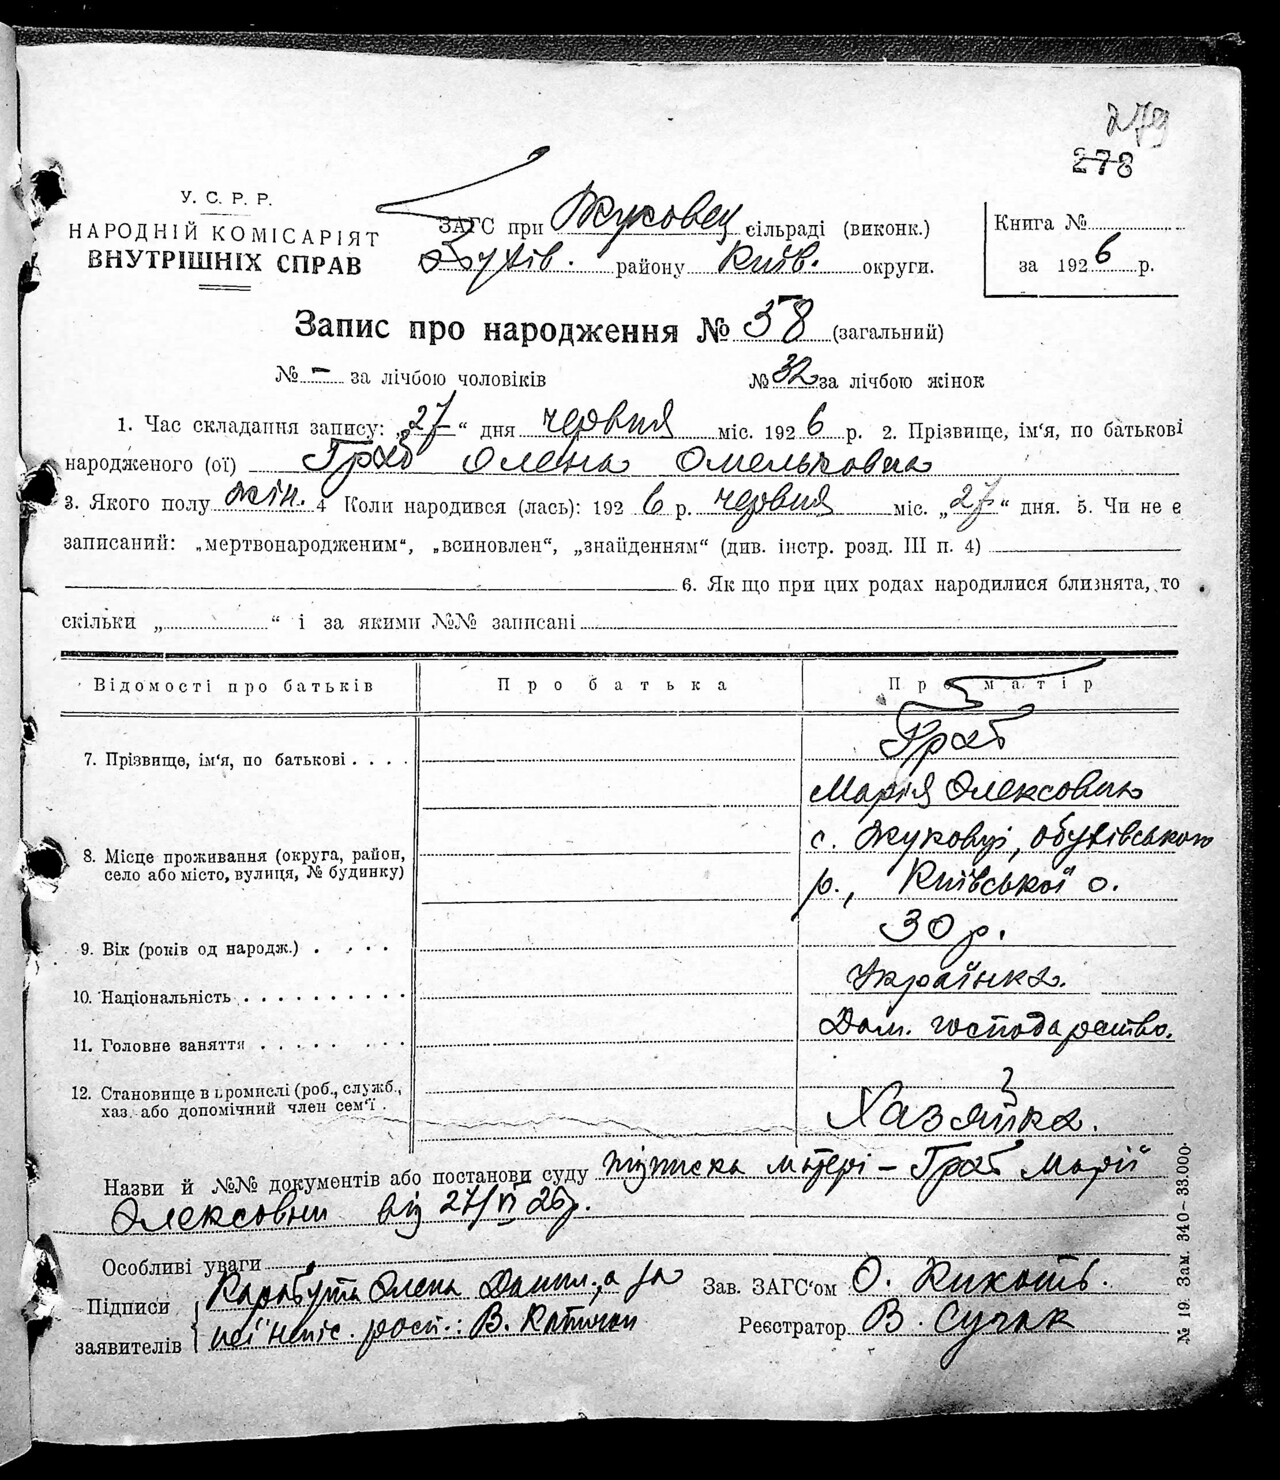 279
278
У. С. Р. Р.
НАРОДНІЙ КОМІСАРІЯТ
ВНУТРІШНІХ СПРАВ
ЗАГС при Жуковец сільраді (виконк.)
Обухів. району Київ. округи.
Книга №
за 1926 р.
Запис про народження № 58 (загальний)
№ - за лічбою чоловіків № 32 за лічбою жінок
1. Час складання запису: „27“ дня червня міс. 1926 р. 2. Прізвище, ім‘я, по батькові
народженого (ої) Граб Олена Омельковна
3. Якого полу жін. 4 Коли народився (лась): 1926 р. червня міс. „27“ дня. 5. Чи не є
записаний: „мертвонародженим“, „всиновлен“, „знайденням“ (див. інстр. розд. III п. 4)
6. Як що при цих родах народилися близнята, то
скільки „ “ і за якими №№ записані
Відомості про батьків Про батька Про матір
7. Прізвище, ім‘я, по батькові . . . . Граб
Марія Олексовна
8. Місце проживання (округа, район, с. Жуковці, обухівського
село або місто, вулиця, № будинку) р., Київської о.
9. Вік (років од народж.) . . . . 30 р.
10. Національність . . . . . . . . . . Українка.
11. Головне заняття . . . . . . . . . Дом. господарство.
12. Становище в промислі (роб., служб., ?
хаз. або допомічний член сем‘ї . Хазяйка.
Назви й №№ документів або постанови суду підписка матері – Граб Марії
Олексовни від 27/VI 26р.
Особливі уваги
Підписи заявителів { Карабута Олена Данил., а за
неї непис. розп.: В.
Зав. ЗАГС‘ом О. Кикоть.
Реєстратор В. Сучак
№ 19. Зам. 340–33.000